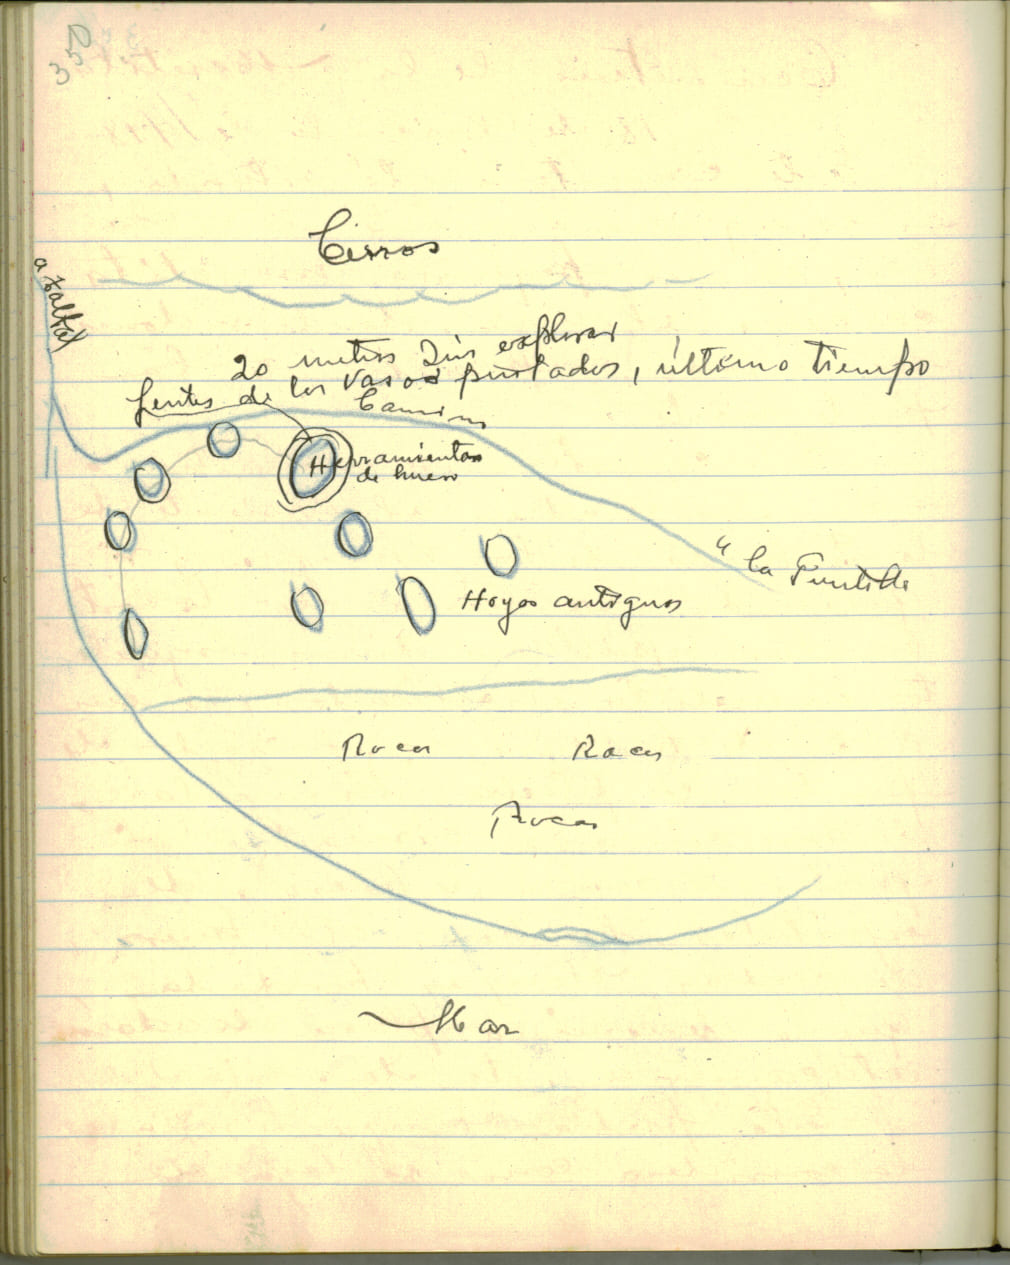 350
Cerros
a Taltal
20 metros sin explorar
Gentes de los vasos pintados, último tiempo
Camino
Herramientas
de hueso
a la Puntilla
Hoyos antiguos
Rocas Rocas
Rocas
Mar